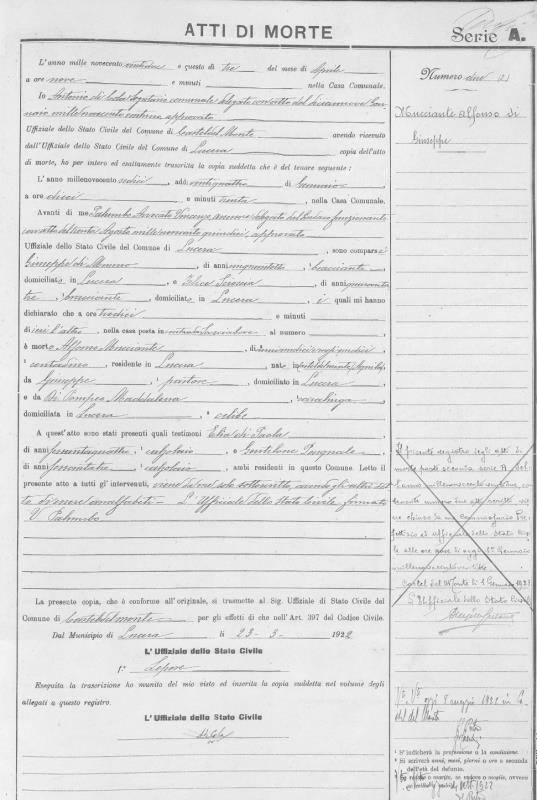 ATTI DI MORTE
Serie A.
L'anno mille novecento ventidue e questo dì tre del mese di Aprile
a ore nove e minuti nella Casa Comunale.
Io Antonio di Cola Segretario comunale delegato con atto del diciannove Gen
naio mille novecento approvato
Uffiziale dello Stato Civile del Comune di Castel del Monte avendo ricevuto
dall'Uffiziale dello Stato Civile del Comune di Lucera copia dell'atto
di morte, ho per intero ed esattamente trascritta la copia suddetta che è del tenore seguente:
L'anno millenovecento sedici, addì ventiquattro di Gennaio,
a ore dieci e minuti trenta, nella Casa Comunale.
Avanti di me Palumbo Avvocato Vincenzo assessore delegato dal Sindaco funzionante
con atto del Agosto mille novecento quindici, approvato
Uffiziale dello Stato Civile del Comune di Lucera, sono comparsi
Giuseppe di Momo, di anni cinquantotto, bracciante
domiciliato in Lucera, e Felice, di anni quaranta
tre, bracciante, domiciliato in Lucera, i quali mi hanno
dichiarato che a ore tredici e minuti
di ieri l'altro, nella casa posta in al numero,
è morto Alfonso Mucciante, di anni
contadino, residente in Lucera, nato in Castel del Monte (Aquila)
da Giuseppe, pastore, domiciliato in Lucera,
e da Di Pompeo Maddalena, casalinga,
domiciliata in Lucera, celibe
A quest'atto sono stati presenti quali testimoni Elia di Paola
di anni trentaquattro, calzolaio, e Gentilone Pasquale,
di anni trentatre, calzolaio, ambi residenti in questo Comune. Letto il
presente atto a tutti gl'intervenuti, viene da me solo sottoscritto, avendo gli altri det
to di essere analfabeti - L'Uffiziale dello Stato Civile firmato
V Palumbo
La presente copia, che è conforme all'originale, si trasmette al Sig. Uffiziale di Stato Civile del
Comune di Castel del monte per gli effetti di che nell'Art. 397 del Codice Civile.
Dal Municipio di Lucera li 23-3-1922
L'Uffiziale dello Stato Civile
f.° Lepore
Eseguita la trascrizione ho munito del mio visto ed inserita la copia suddetta nel volume degli
allegati a questo registro.
L'Uffiziale dello Stato Civile
di Cola
Numero due (2)
Mucciante Alfonso di
Giuseppe
Il presente registro degli atti di
morte parte seconda serie A del
l'anno millenovecentoventidue, con
tenente numero due atti scritti vie
ne chiuso da me Commissario Pre
fettizio ed uffiziale dello Stato Civi
le alle ore nove di oggi 1° Gennaio
millenovecentoventitre
Castel del Monte li 1 Gennaio 1923
L'Uffiziale dello Stato Civile
oggi 8 maggio 1922 in Ca
stel del Monte
¹ S'indicherà la professione o la condizione.
² Si scriverà anni, mesi, giorni o ore a seconda
dell'età del defunto.